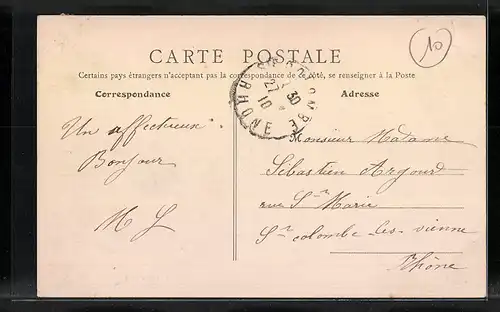 CARTE POSTALE
Certains pays étrangers n'acceptant pas la correspondance de ce côté, se renseigner à la Poste
Correspondance
Adresse
10
RHONE
27 30
10
Un affectueux
Bonjour
M L
Monsieur Madame
Sébastien Argoud
rue Ste Marie
Ste colombe-les-vienne
Rhône